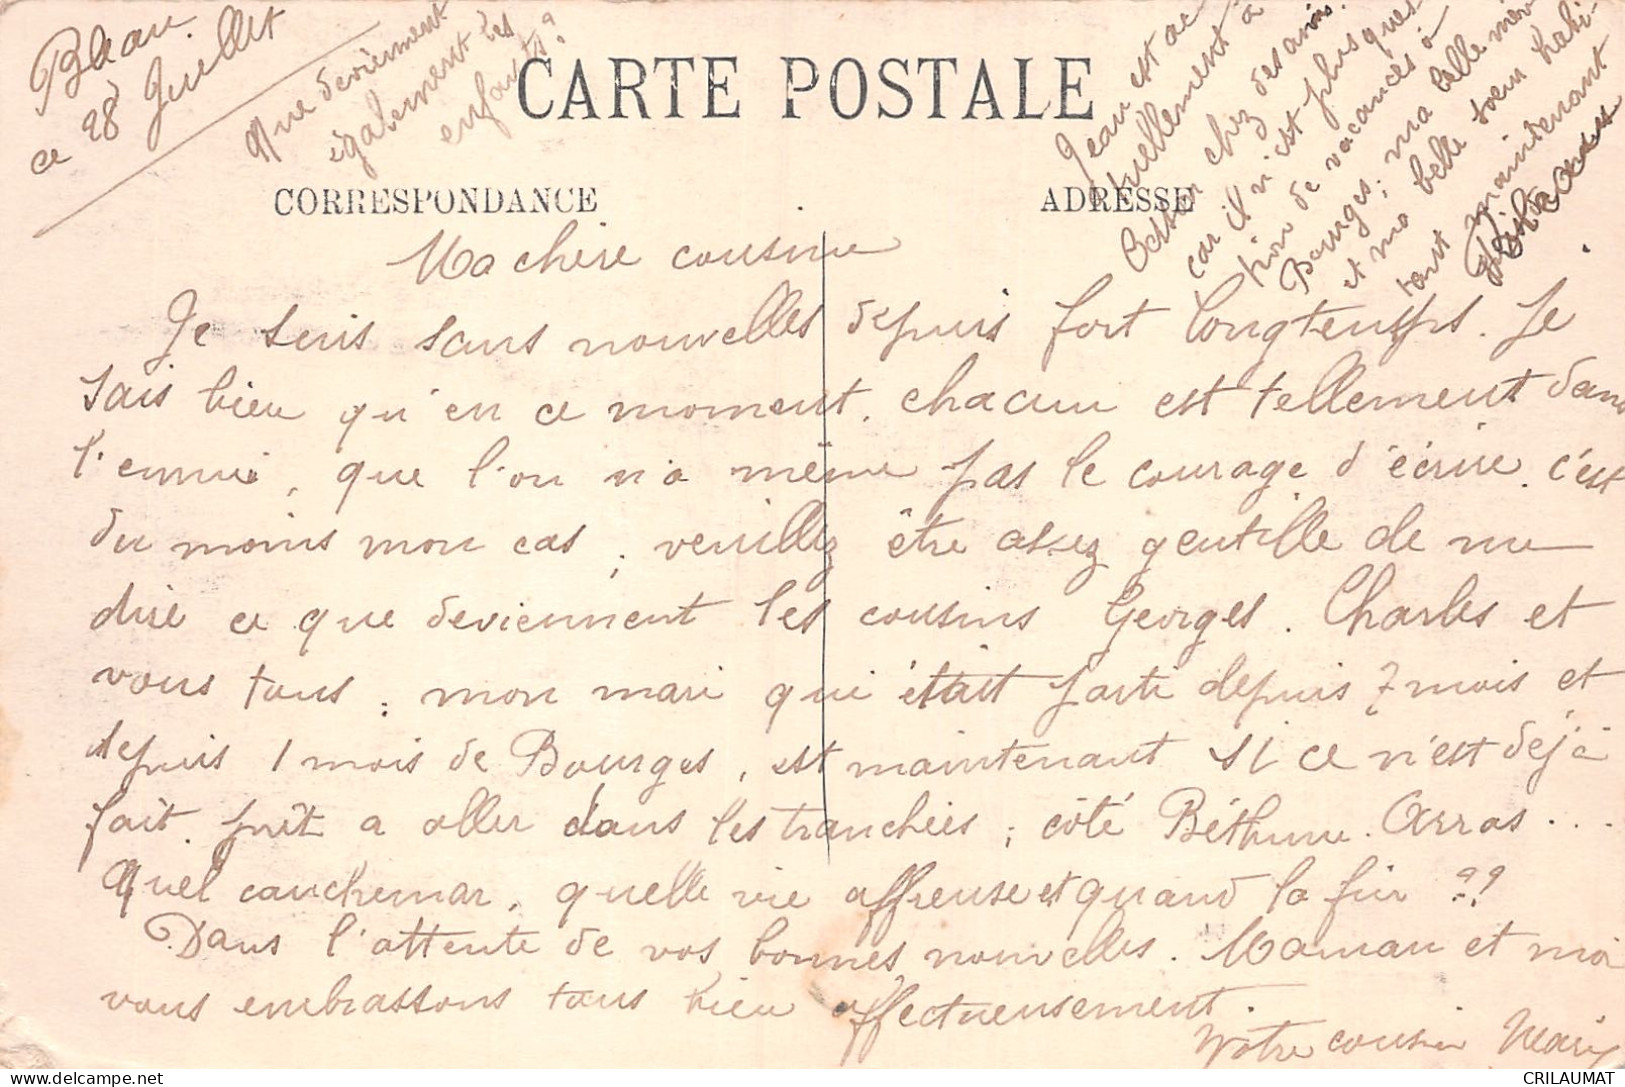 ce 28 Juillet
Que deviennent
également les
enfants?
CARTE POSTALE
CORRESPONDANCE
ADRESSE
Jean est ac
tuellement à
chez des amis
car il n'est plus ques
tion de vacances à
Bourges; ma belle mère
et ma belle soeur habi-
tant maintenant
Ma chère cousine
Je suis sans nouvelles depuis fort longtemps. Je
sais bien qu'en ce moment, chacun est tellement dans
l'ennui, que l'on n'a même pas le courage d'écrire. c'est
du moins mon cas; veuillez être assez gentille de me
dire ce que deviennent les cousins Georges. Charles et
vous tous; mon mari qui était parti depuis 7 mois et
depuis 1 mois de Bourges, est maintenant si ce n'est déjà
fait, prêt a aller dans les tranchées; côté Béthune. Arras...
Quel cauchemar, quelle vie affreuse et quand la fin ??
Dans l'attente de vos bonnes nouvelles. Maman et moi
vous embrassons tous bien affectueusement.
Votre cousine Marie
CRILAUMAT